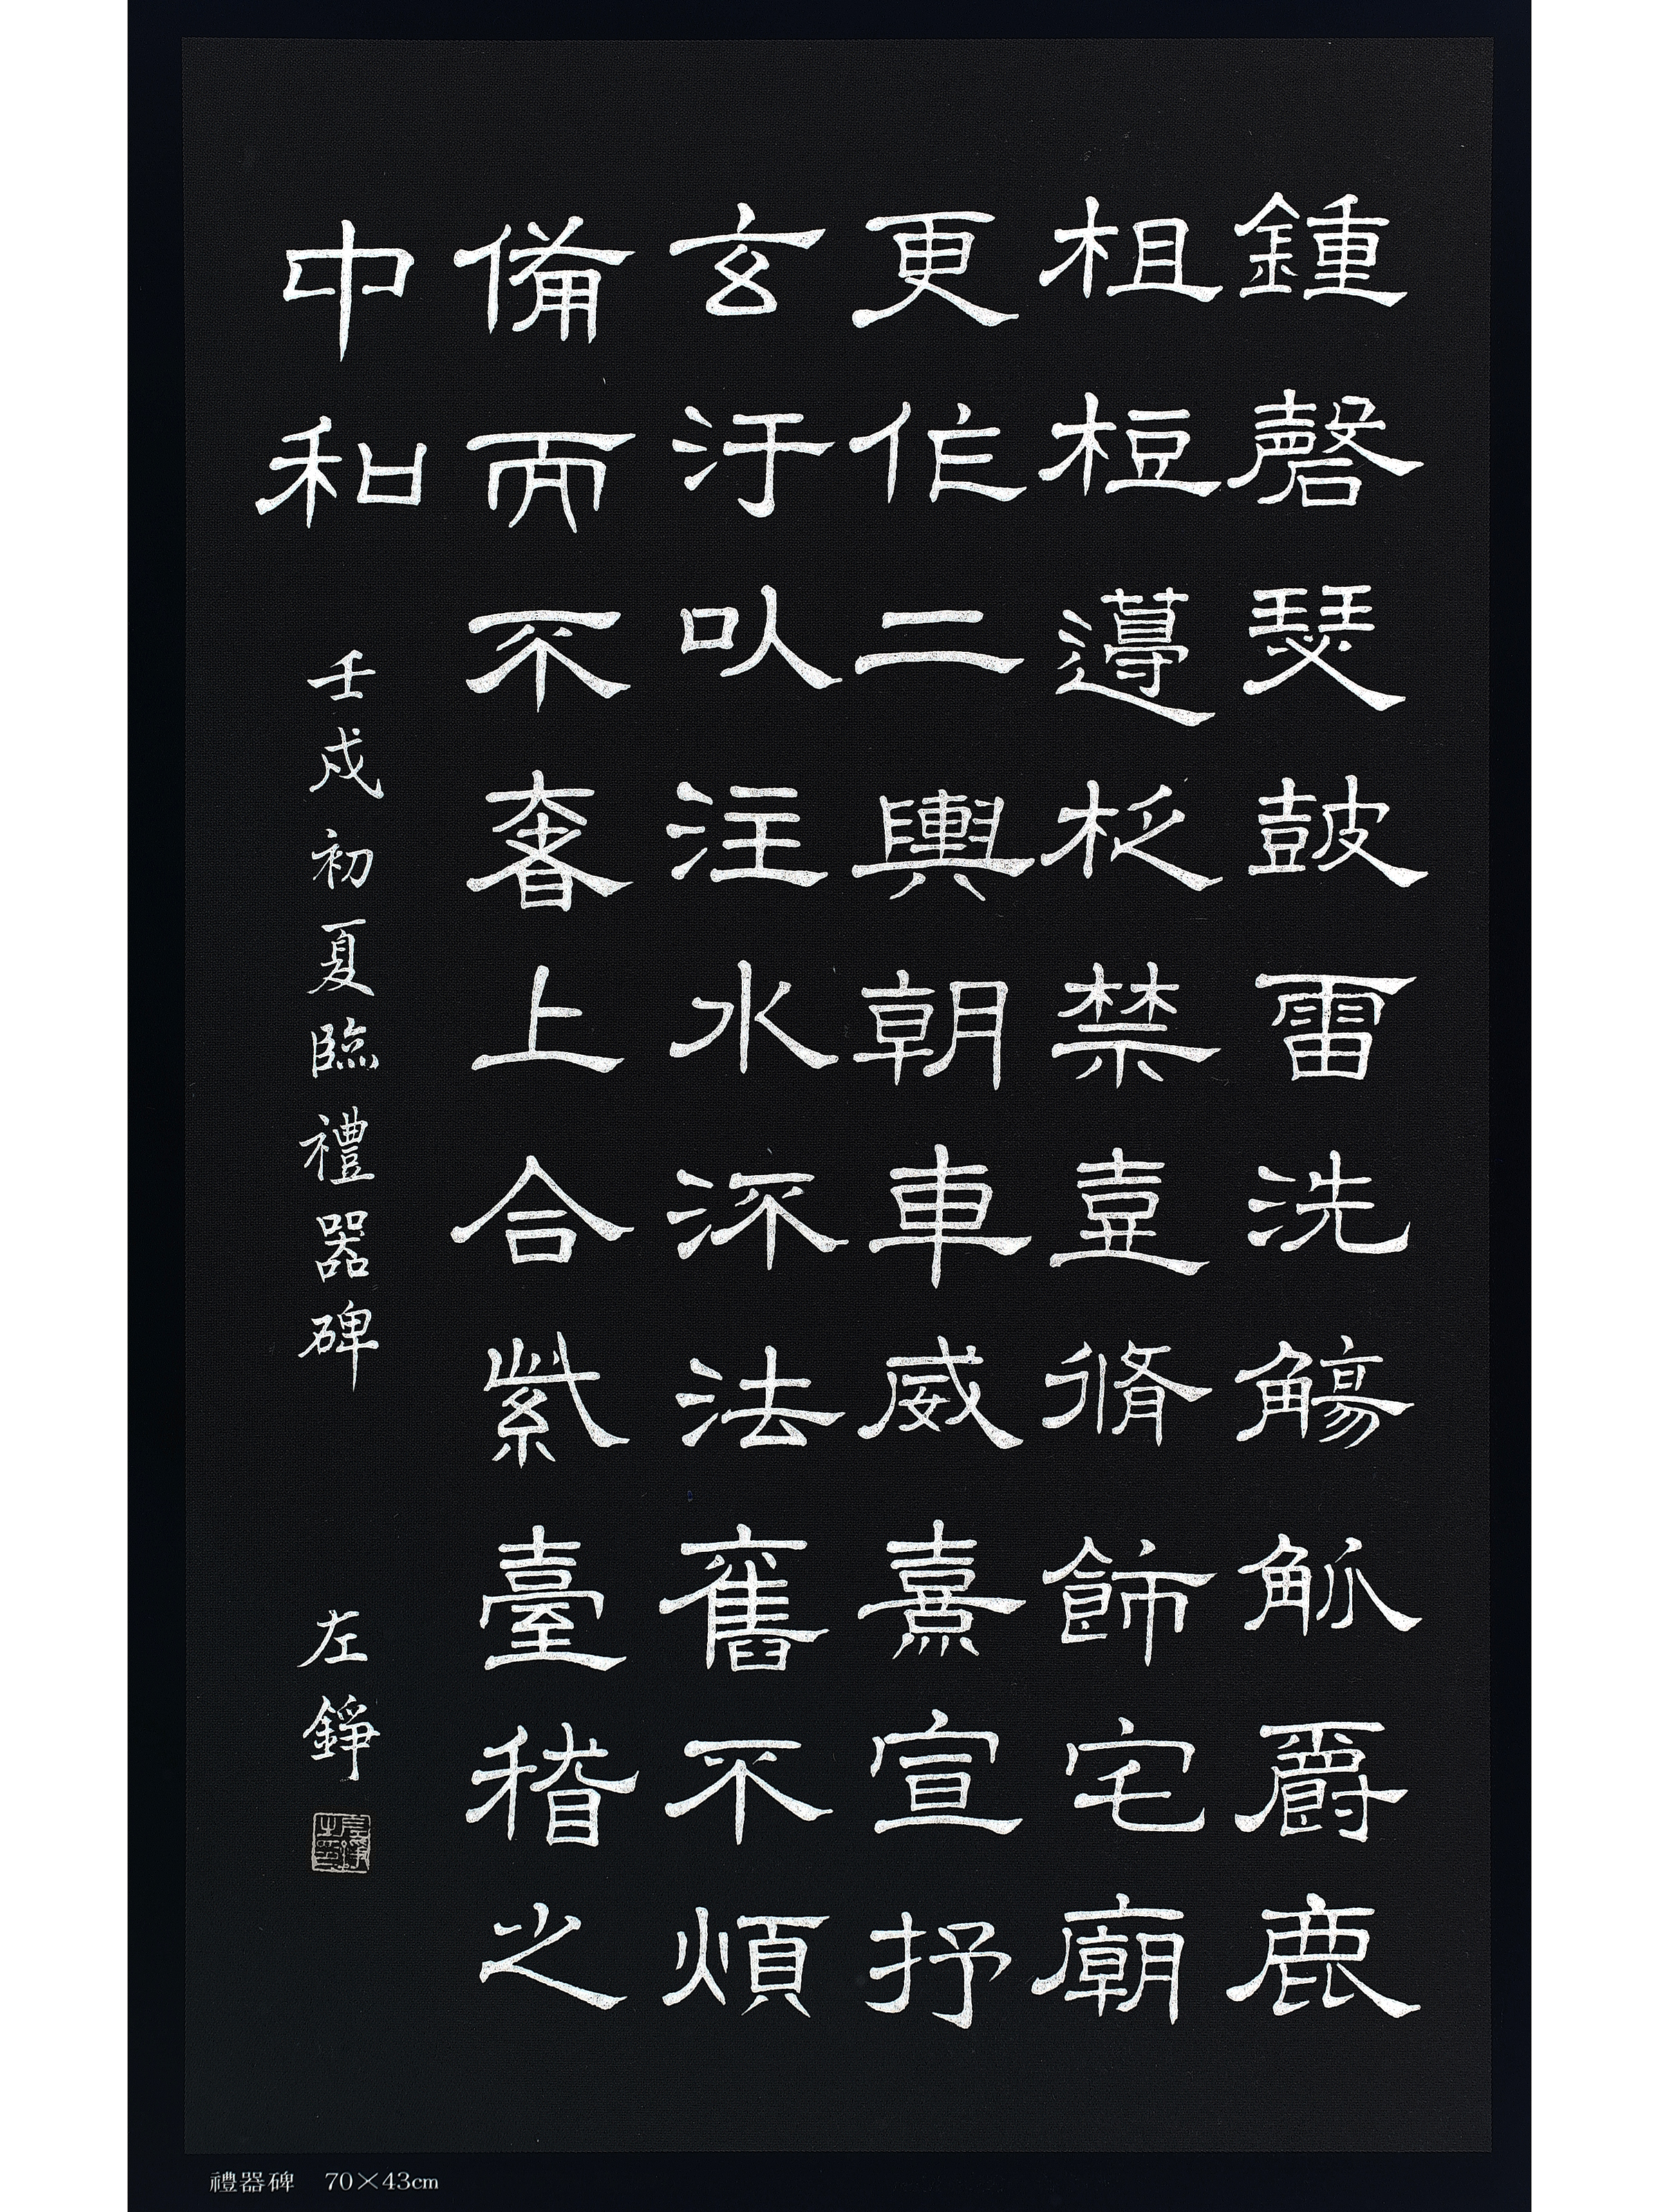 鍾磬瑟鼓雷洗觴觚爵鹿
柤梪籩柉禁壺脩飾宅廟
更作二輿朝車威熹宣抒
玄汙以注水流法舊不煩
備而不奢上合紫臺稽之
中和
壬戌初夏臨禮器碑 左錚
左錚之印
禮器碑 70×43cm